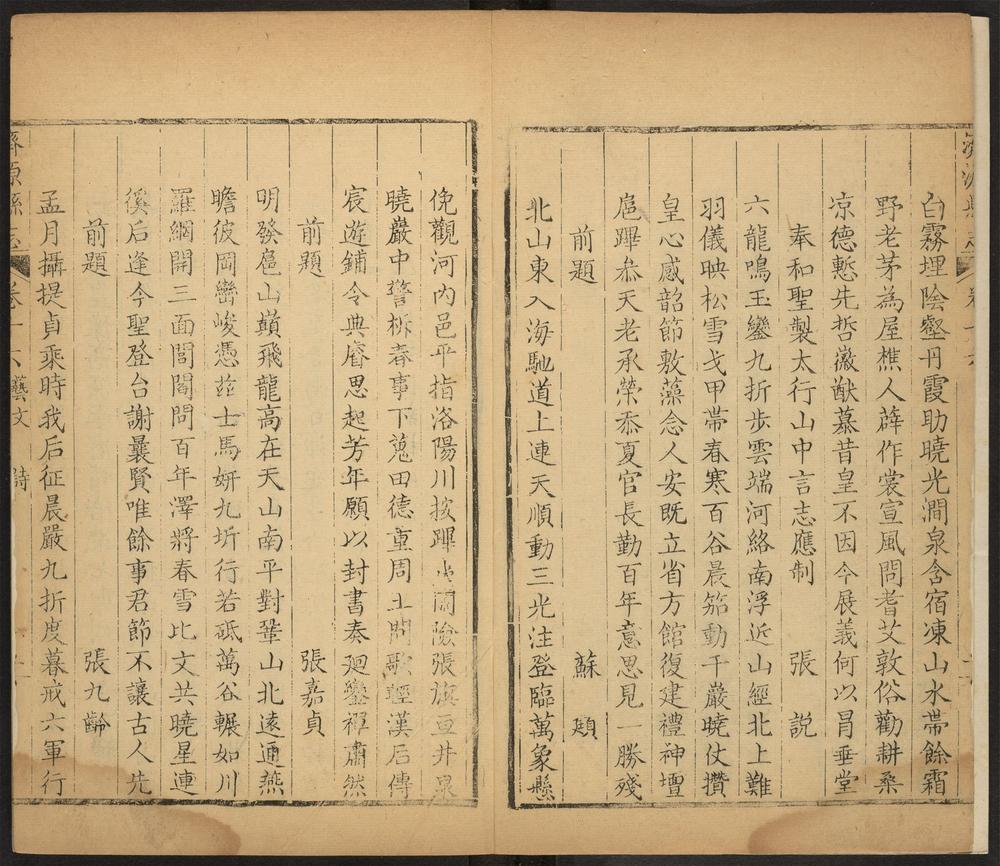 白霧埋陰壑丹霞助曉光澗泉含宿凍山水帶餘霜
野老茅為屋樵人薜作裳宣風問耆艾敦俗勸耕桑
凉德慙先哲徽猷慕昔皇不因今展義何以冒垂堂
奉和聖製太行山中言志應制 張說
六龍鳴玉鑾九折步雲端河絡南浮近山經北上難
羽儀映松雪戈甲帶春寒百谷晨笳動千巖曉仗攢
皇心感韶節敷藻念人安既立省方館復建禮神壇
扈蹕叅天老承榮忝夏官長勤百年意思見一勝殘
前題 蘇頲
北山東入海馳道上連天順動三光注登臨萬象懸
俛觀河內邑平指洛陽川按蹕 關險張旗亘井泉
曉巖中警柝春事下蒐田德重周王問歌輕漢后傳
宸遊鋪令典睿思起芳年願以封書奏廻鑾禪肅然
前題 張嘉貞
明發扈山巔飛龍高在天山南平對鞏山北遠通燕
瞻彼岡巒峻憑兹士馬妍九圻行若砥萬谷輾如川
羅網開三面閭閻問百年澤將春雪比文共曉星連
徯后逢今聖登台謝曩賢唯餘事君節不讓古人先
前題 張九齡
孟月攝提貞乘時我后征晨嚴九折度暮戒六軍行
濟源縣志 卷十六 藝文 詩